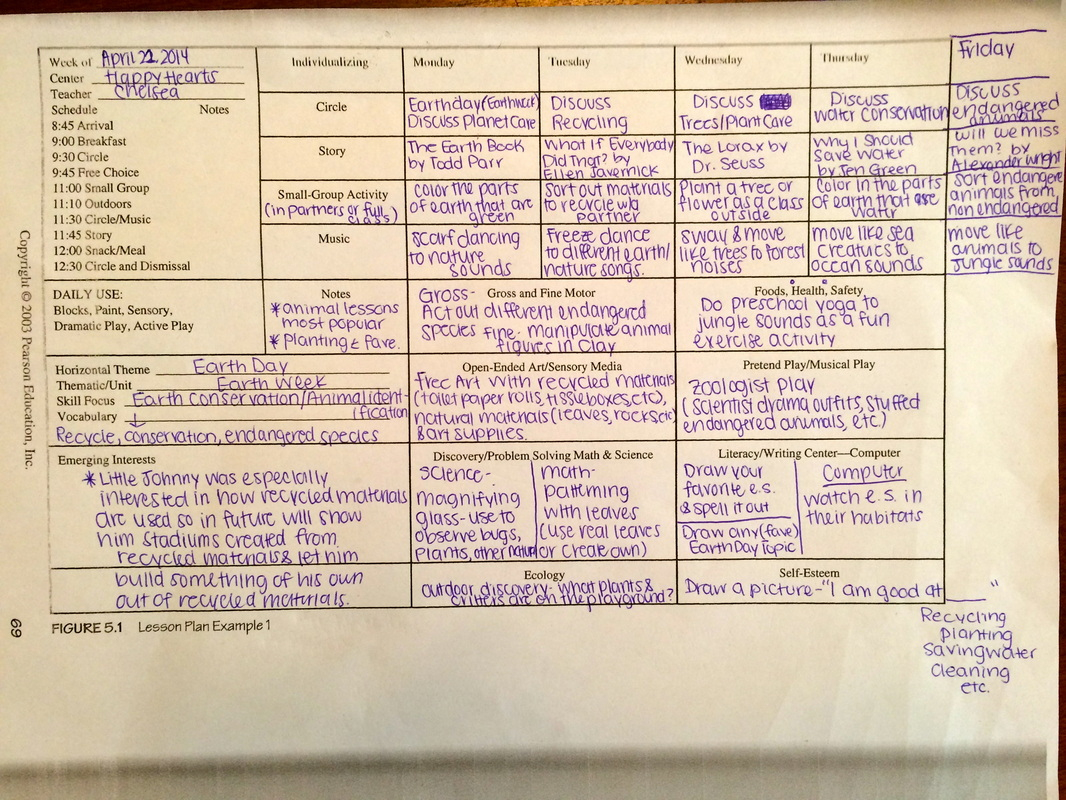 Week of April 22, 2014
Center Happy Hearts
Teacher Chelsea
Schedule Notes
8:45 Arrival
9:00 Breakfast
9:30 Circle
9:45 Free Choice
11:00 Small Group
11:10 Outdoors
11:30 Circle/Music
11:45 Story
12:00 Snack/Meal
12:30 Circle and Dismissal
Individualizing
Monday
Tuesday
Wednesday
Thursday
Friday
Circle
Earthday (Earthweek)
Discuss Planet Care
Discuss
Recycling
Discuss
Trees/Plant Care
Discuss
water conservation
Discuss
endangered
animals
Story
The Earth Book
by Todd Parr
What if Everybody
Did That? by
Ellen Javernick
The Lorax by
Dr. Seuss
Why I Should
Save Water
by Jen Green
Will we miss
Them? by
Alexander Wright
Small-Group Activity
(in partners or full
class)
Color the parts
of earth that are
green
Sort out materials
to recycle w/a
partner
Plant a tree or
flower as a class
outside
Color in the parts
of earth that are
water
Sort endangere
animals from
non endangered
Music
Scarf dancing
to nature
sounds
Freeze dance
to different earth/
nature songs.
Sway & move
like trees to forest
noises
move like sea
creatures to
ocean sounds
move like
animals to
jungle sounds
DAILY USE:
Blocks, Paint, Sensory,
Dramatic Play, Active Play
Notes
*animal lessons
most popular
*Planting & fave.
Gross and Fine Motor
Gross-
Act out different endangered
species fine- manipulate animal
figures in clay
Foods, Health, Safety
Do preschool yoga to
jungle sounds as a fun
exercise activity
Horizontal Theme Earth Day
Thematic/Unit Earth Week
Skill Focus Earth Conservation/Animal ident-
ification
Vocabulary
Recycle, conservation, endangered species
Open-Ended Art/Sensory Media
Free Art with recycled materials
(toilet paper rolls, tissue boxes, etc),
natural materials (leaves, rocks etc)
& art supplies.
Pretend Play/Musical Play
Zoologist play
(scientist drama outfits, stuffed
endangered animals, etc.)
Emerging Interests
*Little Johnny was especially
interested in how recycled materials
are used so in future will show
him stadiums created from
recycled materials & let him
build something of his own
out of recycled materials.
Discovery/Problem Solving Math & Science
Science-
magnifying
glass- use to
observe bugs,
plants, other natur
math-
patterning
with leaves
(use real leaves
or create own)
Literacy/Writing Center—Computer
Draw your
favorite e.s.
& spell it out
Draw any (fave)
Earth Day Topic
Computer
watch e.s. in
their habitats
Ecology
outdoor discovery- what plants &
critters are on the playground?
Self-Esteem
Draw a picture-"I am good at ____"
Recycling
planting
saving water
cleaning
etc.
FIGURE 5.1 Lesson Plan Example 1
Copyright © 2003 Pearson Education, Inc.
69